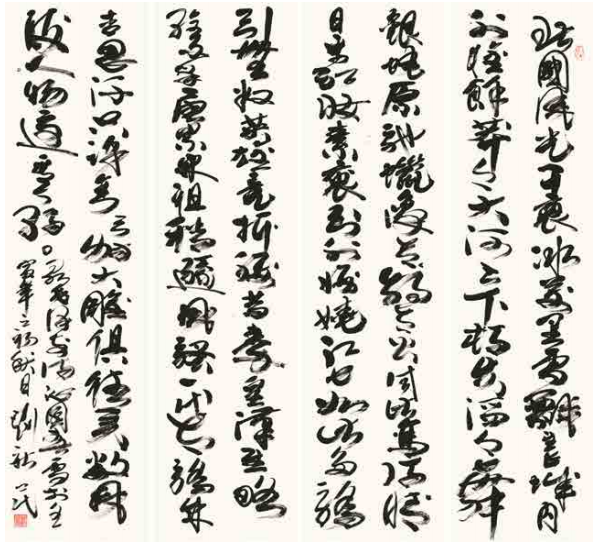 北國風光千里冰封萬里雪飄望長城內
外惟餘莽莽大河上下頓失滔滔山舞
銀蛇原馳蠟象欲與天公試比高須晴
日看紅妝素裹分外妖嬈江山如此多嬌
引無數英雄競折腰惜秦皇漢武略
輸文采唐宗宋祖稍遜風騷一代天驕
吉思汗只識彎弓射大雕俱往矣數風
流人物還看今朝
沁園春雪